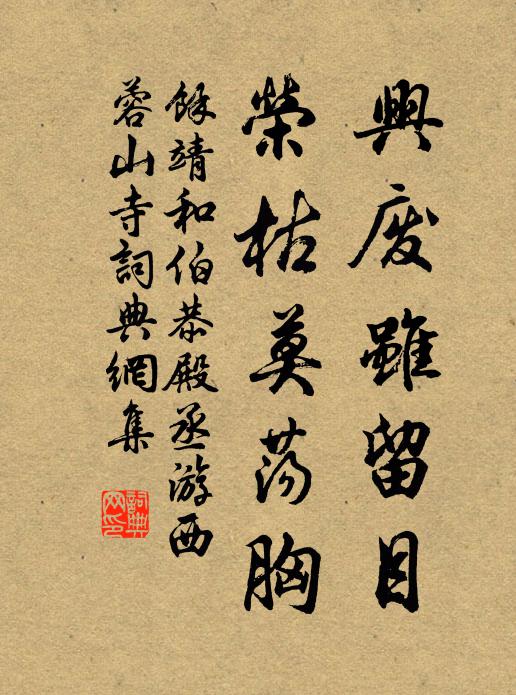 興废雖留目
榮枯莫蕩胸
餘靖和伯恭殿丞游西
蓉山寺詞典網集
詞典
网印